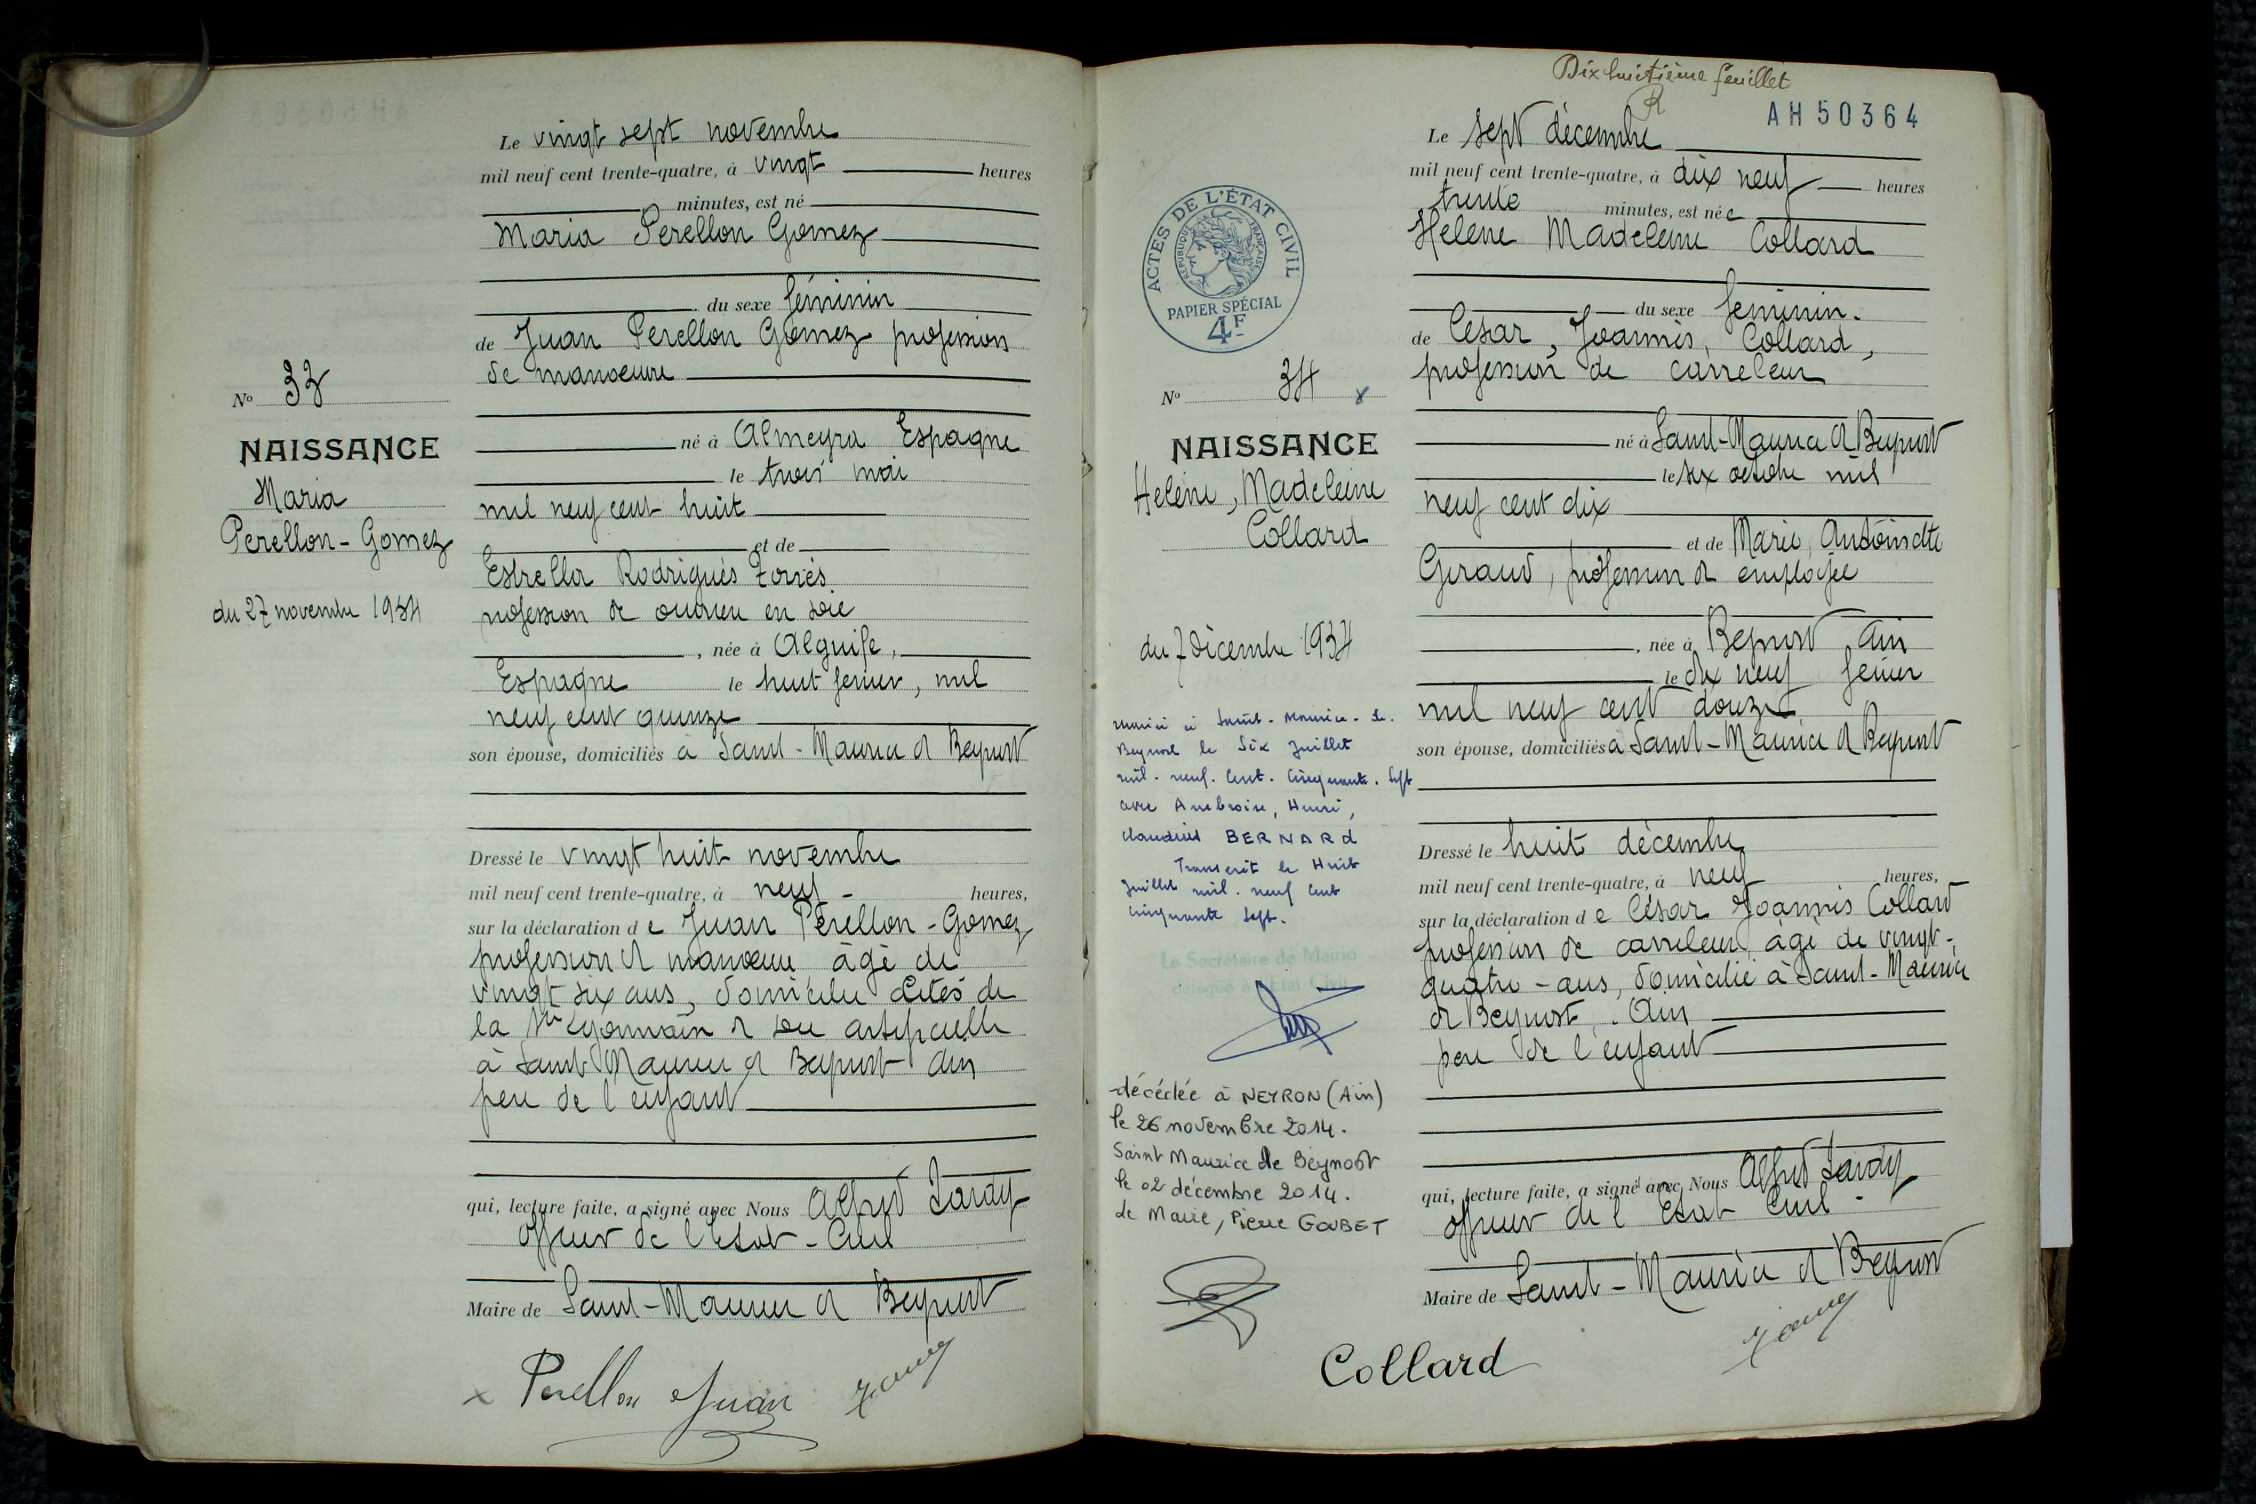 Le vingt sept novembre
mil neuf cent trente-quatre, à vingt heures
minutes, est né
Maria Perellon Gomez
du sexe féminin
de Juan Perellon Gomez profession
de manoeuvre
né à Almeyra Espagne
le trois mai
mil neuf cent huit
et de
Estrella Rodrigués Torrés
profession de ouvrière en soie
, née à Alguife,
Espagne le huit février, mil
neuf cent quinze
son épouse, domiciliés à Saint-Maurice de Beynost
Dressé le vingt huit novembre
mil neuf cent trente-quatre, à neuf heures,
sur la déclaration de Juan Pérellon-Gomez
profession de manoeuvre âgé de
vingt six ans, domicilié cités de
la Sté Lyonnaise de soie artificielle
à Saint Maurice de Beynost Ain
père de l'enfant
qui, lecture faite, a signé avec Nous Alfred Tardy
officier de l'Etat-Civil
Maire de Saint-Maurice de Beynost
Perellon Juan
Nº 33
NAISSANCE
Maria
Perellon-Gomez
du 27 novembre 1934
Dix huitième feuillet
AH 50364
Le sept décembre
mil neuf cent trente-quatre, à dix neuf heures
trente minutes, est née
Hélène Madeleine Collard
du sexe féminin.
de César, Joannès, Collard,
profession de carreleur
né à Saint-Maurice de Beynost
le six octobre mil
neuf cent dix
et de Marie, Antoinette
Geraud, profession de employée
, née à Beynost Ain
le dix neuf février
mil neuf cent douze
son épouse, domiciliés à Saint-Maurice de Beynost
Dressé le huit décembre
mil neuf cent trente-quatre, à neuf heures,
sur la déclaration de César Joannès Collard
profession de carreleur, âgé de vingt-
quatre-ans, domicilié à Saint-Maurice
de Beynost, Ain
père de l'enfant
qui, lecture faite, a signé avec Nous Alfred Tardy
officier de l'Etat Civil
Maire de Saint-Maurice de Beynost
Collard
ACTES DE L'ÉTAT CIVIL
RÉPUBLIQUE FRANÇAISE
PAPIER SPÉCIAL
4F
Nº 34
NAISSANCE
Hélène, Madeleine
Collard
du 7 décembre 1934
mariée à Saint-Maurice-de-
Beynost le Six Juillet
mil-neuf-Cent-Cinquante-Sept
avec Ambroise, Henri,
Claudius BERNARd
Transcrit le Huit
Juillet mil-neuf Cent
Cinquante Sept.
Le Secrétaire de Mairie
délégué à l'Etat Civil
décédée à NEYRON (Ain)
le 26 novembre 2014.
Saint Maurice de Beynost
le 02 décembre 2014.
le Maire, Pierre GOUBET